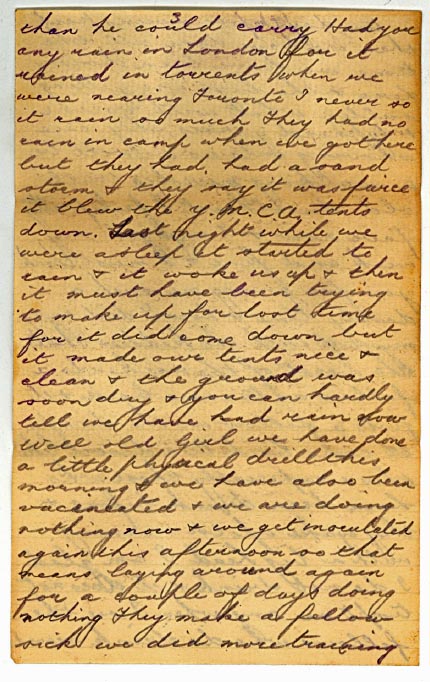 3
than he could carry Had you
any rain in London for it
rained in torrents when we
were nearing Toronto I never so
it rain so much They had no
rain in camp when we got here
but they had. had a sand
storm & they say it was furce
it blew the Y.M.C.A. tents
down. Last night while we
were asleep it started to
rain & it woke us up & then
it must have been trying
to make up for lost time
for it did come down but
it made our tents nice &
clean & the ground was
soon dry & you can hardly
tell we have had rain now
Well old Girl we have done
a little physical drill this
morning & we have also been
vaccinated & we are doing
nothing now & we get inoculated
again this afternoon so that
means laying around again
for a couple of days doing
nothing They make a fellow
sick we did more training